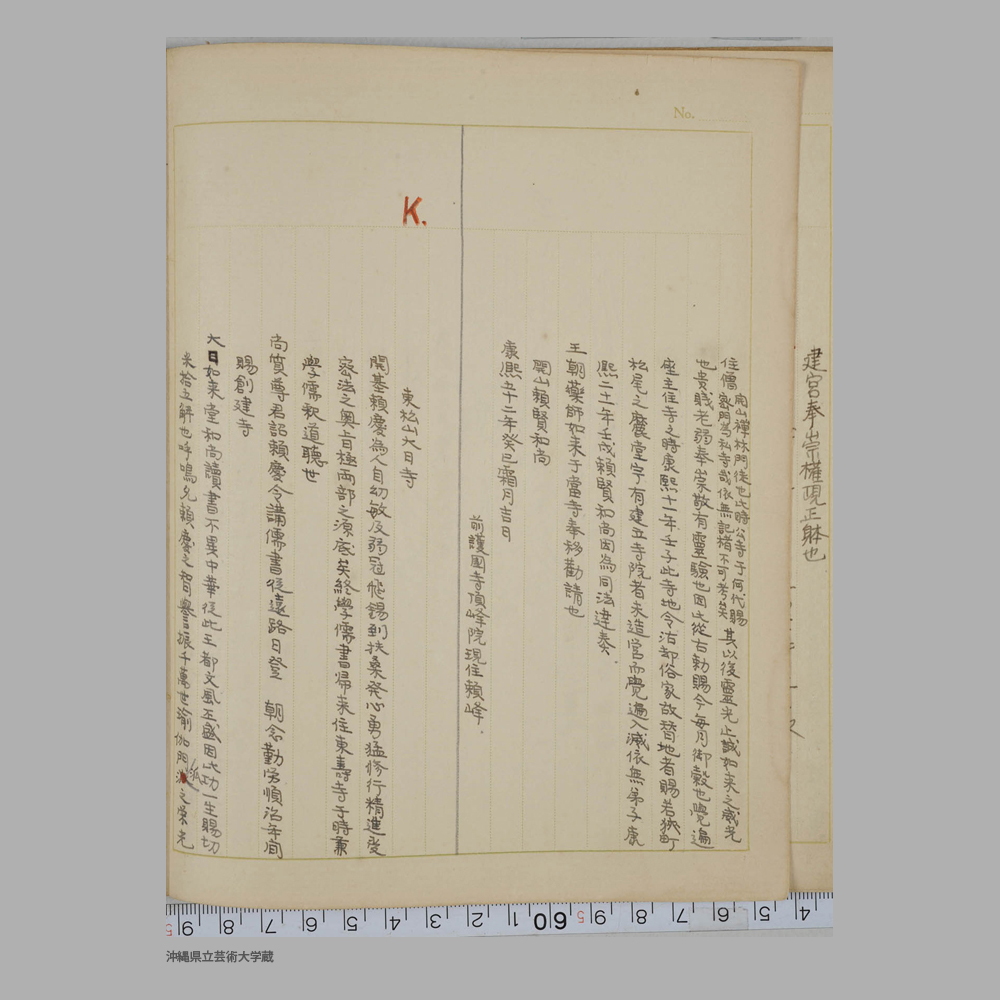 建宮奉崇權現正躰也
No.
開山禪林門徒也此時公寺于何代賜
住僧 密門為私寺哉依無記楮不可考矣 其以後靈光止誠如来之威光
也貴賎老弱奉崇敬有靈驗也因玆從古勅賜今毎月御穀也覺遍
座主住寺之時康熙十一年壬子此寺地令沽却俗家故替地者賜若狹町
松尾之麓堂宇有建立寺院者未造宮而覺遍入滅依無弟子康
熙二十一年壬戌頼賢和尚因為同法達奏.
王朝藥師如来于當寺奉移勸請也
開山頼賢和尚
康熙五十二年癸巳霜月吉日
前護國寺頂峰院現住頼峰.
K.
東松山大日寺
開基頼慶為人自幼敏及弱冠飛錫到扶桑発心勇猛修行精進受
密法之奥旨極両部之源底矣終學儒書帰来住東壽寺于時兼
學儒釈道聽也
尚質尊君詔頼慶令講儒書從遠路日登 朝念勤労順治年間
賜創建寺
大日如来堂和尚讀書不異中華従此王都文風丕盛因此功一生賜切
米拾五斛也呼鳴允頼慶之智譽振千萬世瑜伽門派之源光